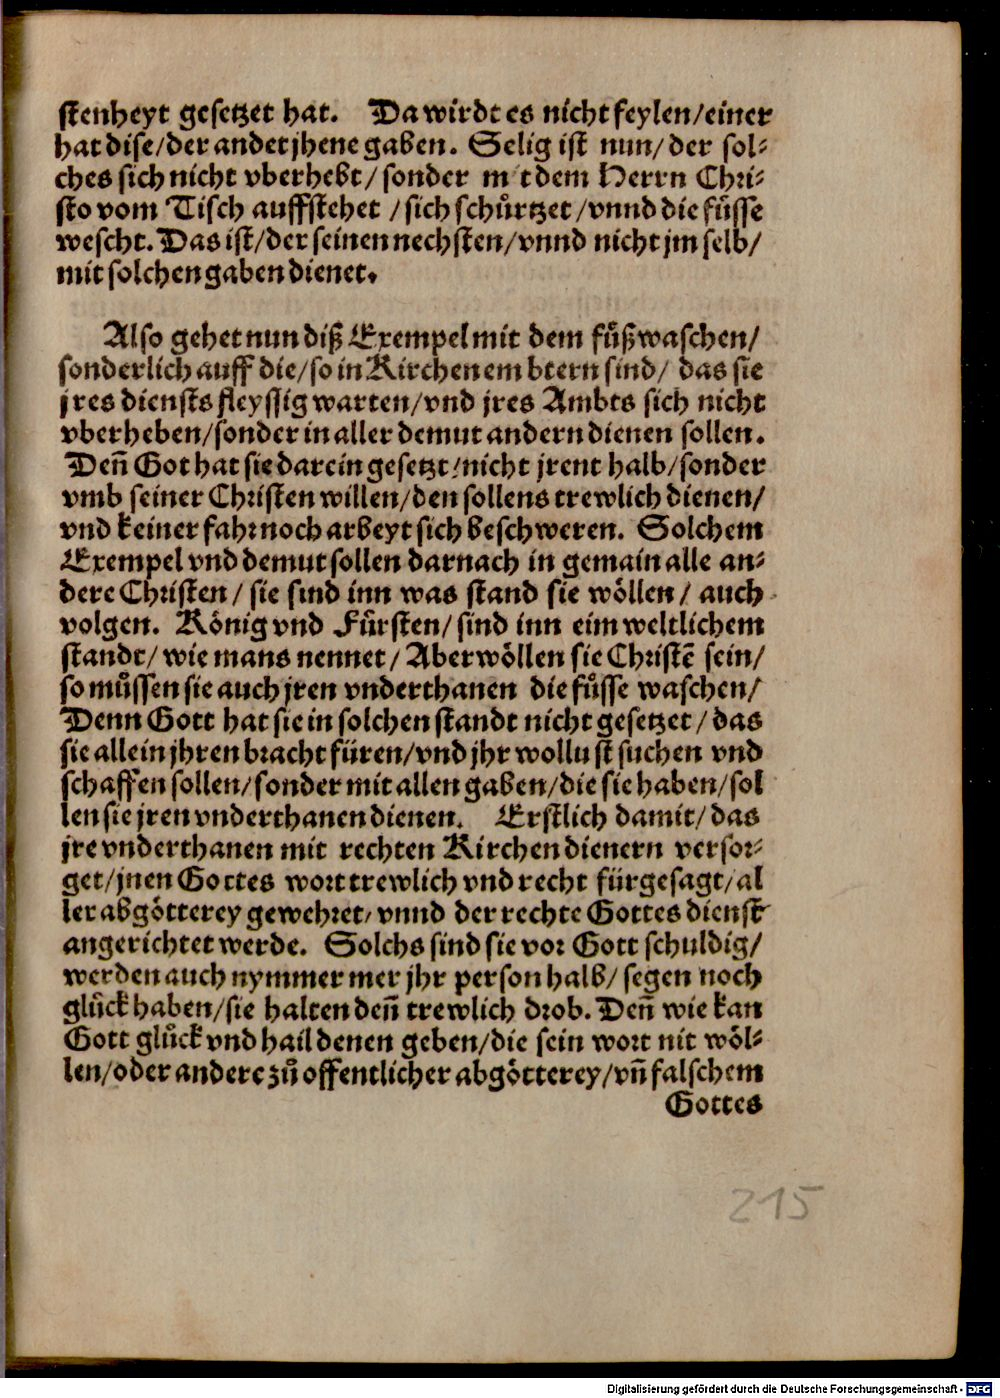 stenheyt gesetzet hat. Da wirdt es nicht feylen/einer
hat dise/der andet jhene gaben. Selig ist nun/ der sol⸗
ches sich nicht vberhebt/ sonder m t dem Herrn Chri⸗
sto vom Tisch auffstehet /sich schuͤrtzet/vnnd die fuͤsse
wescht. Das ist/der seinen nechsten/vnnd nicht jm selb/
mit solchen gaben dienet.
Also gehet nun diß Exempel mit dem fuͤßwaschen/
sonderlich auff die/so in Kirchen em btern sind/ das sie
jres diensts fleyssig warten/vnd jres Ambts sich nicht
vberheben/sonder in aller demut andern dienen sollen.
Deñ Got hat sie darein gesetzt/nicht jrent halb/sonder
vmb seiner Christen willen/den sollens trewlich dienen/
vnd keiner fahr noch arbeyt sich beschweren. Solchem
Exempel vnd demut sollen darnach in gemain alle an⸗
dere Christen/ sie sind inn was stand sie woͤllen/ auch
volgen. Koͤnig vnd Fuͤrsten/ sind inn eim weltlichem
standt/ wie mans nennet/ Aber woͤllen sie Christē sein/
so muͤssen sie auch jren vnderthanen die fuͤsse waschen/
Denn Gott hat sie in solchen standt nicht gesetzet/ das
sie allein jhren bracht füren/vnd jhr wollust suchen vnd
schaffen sollen/sonder mit allen gaben/die sie haben/sol
len sie jren vnderthanen dienen. Erstlich damit/ das
jre vnderthanen mit rechten Kirchen dienern versor⸗
get/jnen Gottes wort trewlich vnd recht fürgesagt/al
ler abgoͤtterey gewehret/vnnd der rechte Gottes dienst
angerichtet werde. Solchs sind sie vor Gott schuldig/
werden auch nymmer mer jhr person halb/ segen noch
gluͤck haben/sie halten deñ trewlich drob. Deñ wie kan
Gott gluͤck vnd hail denen geben/die sein wort nit woͤl⸗
len/oder andere zuͦ offentlicher abgoͤtterey/vñ falschem
Gottes
215
Digitalisierung gefördert durch die Deutsche Forschungsgemeinschaft - DFG